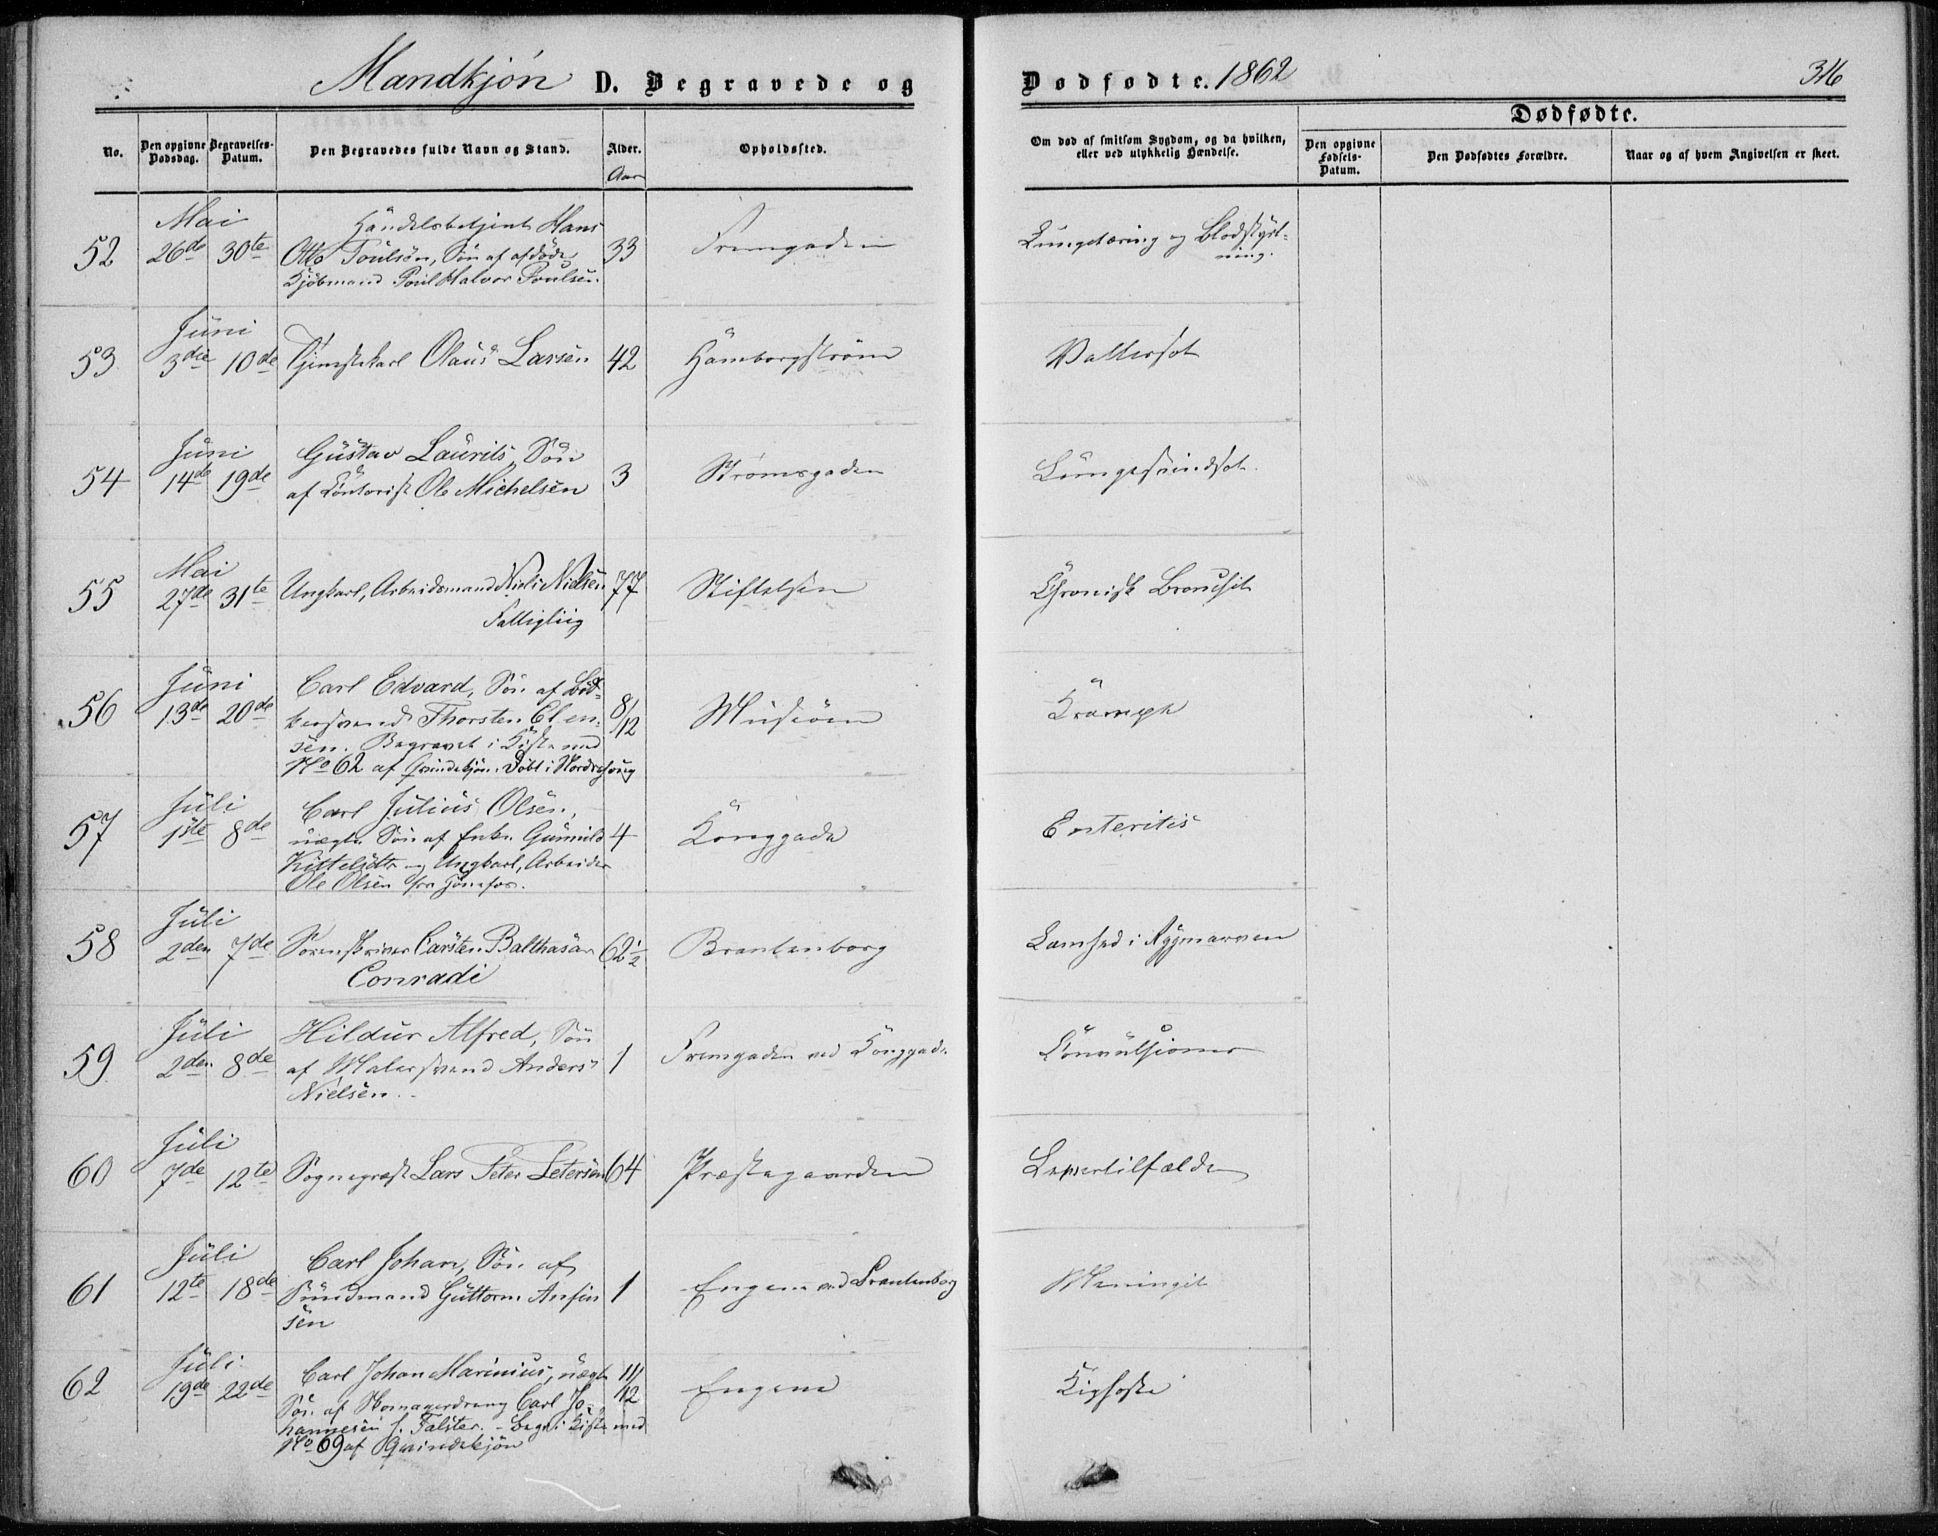 Mandkjøn D. Begravede og
Dødfødte. 1862
316
No.
Den opgivne Dødsdag.
Begravelses-Datum.
Den Begravedes fulde Navn og Stand.
Alder.
Aar
Opholdssted.
Om død af smitsom Sygdom, og da hvilken,
eller ved ulykkelig Hændelse.
Dødfødte.
Den opgivne Fødsels-Datum.
Den Dødfødtes Forældre.
Naar og af hvem Angivelsen er skeet.
Mai
52 26de 30te Handelsbetjent Hans
Otto Poulsen, Søn af afdøde
Kjøbmand Poul Halvor Poulsen.
33
Tremgaden
Lungetæring og Blodstyrt-
ning.
Juni
53 3die 10de Tjenestekarl Olaus Larsen 42 Hamborgstrøm Vattersot
Juni
54 14de 19de Gustav Laurits, Søn
af Contorist Ole Michelsen
3 Strømsgaden
Mai
55 27de 31te Ungkarl, Arbeidsmand Niels Nielsen 77 Stiftelsen Chronisk Bronchit
Fattiglig
Juni
56 13de 20de Carl Edvard, Søn af Bød-
kersvend Thorsten
sen. Begravet i Kiste med
No 62 af Qvindekjøn. Døbt i Nordre
8/12
Krampe
Juli
57 1ste 8de Carl Julius Olsen,
uægte Søn af Enke Gunnild
Kittelsdtr og Ungkarl, Arbeider
Ole Olsen fra
4 Konggade Enteritis
Juli
58 2den 7de Sorenskriver Carsten Balthasar
Conradi
62½ Brantenborg Lamhed i Rygmarven
Juli
59 2den 8de Hildur Alfred, Søn
af Malersvend Anders
Nielsen.
1 Tremgaden ved Konggade Convulsioner
Juli
60 7de 12te Sognepræst Lars Peter Petersen 64 Præstegaarden Levertilfælde
Juli
61 12te 18de Carl Johan, Søn af
Sundmand Guttorm Anfin
sen
1 Engene ved Brantenborg Meningit
Juli
62 19de 22de Carl Johan Marinius, uægte
Søn af Skomagerdreng Carl Jo-
hannesen f. Falster. - Begr. i Kiste med
No 69 af Qvindekjøn
11/12
Engene Kighoste